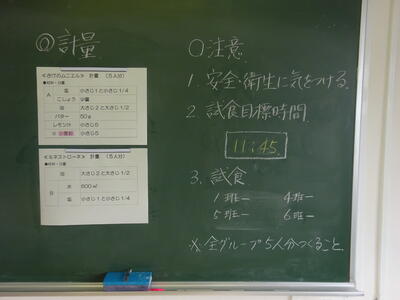 ◎計量
≪さけのムニエル≫ 計量 (5人分)
●材料・分量
A 塩 小さじ1と小さじ1/4
こしょう 少量
油 大さじ2と大さじ1/2
バター 50g
レモン汁 小さじ5
小さじ5
≪ミネストローネ≫ 計量 (5人分)
●材料・分量
油 大さじ2と大さじ1/2
B 水 600ml
塩 小さじ1と小さじ1/4
○注意
1. 安全・衛生に気をつける.
2. 試食目標時間.
11:45
3. 試食
1班ー 4班ー
5班ー 6班ー
※全グループ5人分つくること.